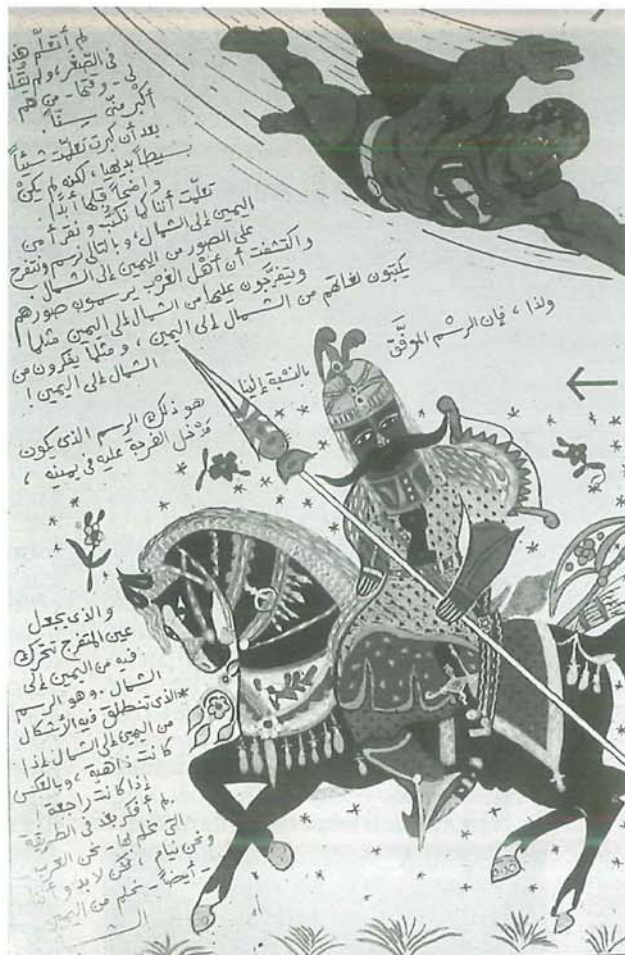 لم أتعلّم هذا
في الصّغر، ولم يَقُله
لي - وقتها - من هم
أكبر منّي سنّاً.
بعد أن كبرت تعلّمت شيئاً
بسيطاً بديهيا، لكنه لم يكنْ
واضحاً قبلها أبدًا.
تعلّمت أننا كما نكتبُ ونقرأ من
اليمين إلى الشمال، وبالتالي نرسم ونتفرج
على الصور من اليمين إلى الشمال.
واكتشفت أن أهْل الغرْب يرسمون صورهم
ويتفرّجون عليها من الشمال إلى اليمين مثلما
يكتبون لغاتهم من الشمال إلى اليمين، ومثلما يفكرون من
الشمال إلى اليمين!
ولذا، فإن الرسْم الموَفَّق
بالنسْبة إلينا
هو ذلك الرسم الذي يكون
مَدْخل الفرجة عليه في يمينه،
والذي يجعل
عين المتفرج تتحرّك
فيه من اليمين إلى
الشمال. وهو الرسم
الذي تنطلق فيه الأشكال
من اليمين إلى الشمال إذا
كانت ذاهبة، وبالعكس
إذا كانت راجعة!
لم أفكر بعد في الطريقة
التي نحلم بها - نحن العرب -
ونحن نيام، لكن لابد وأننا
- أيضاً - نحلم من اليمين